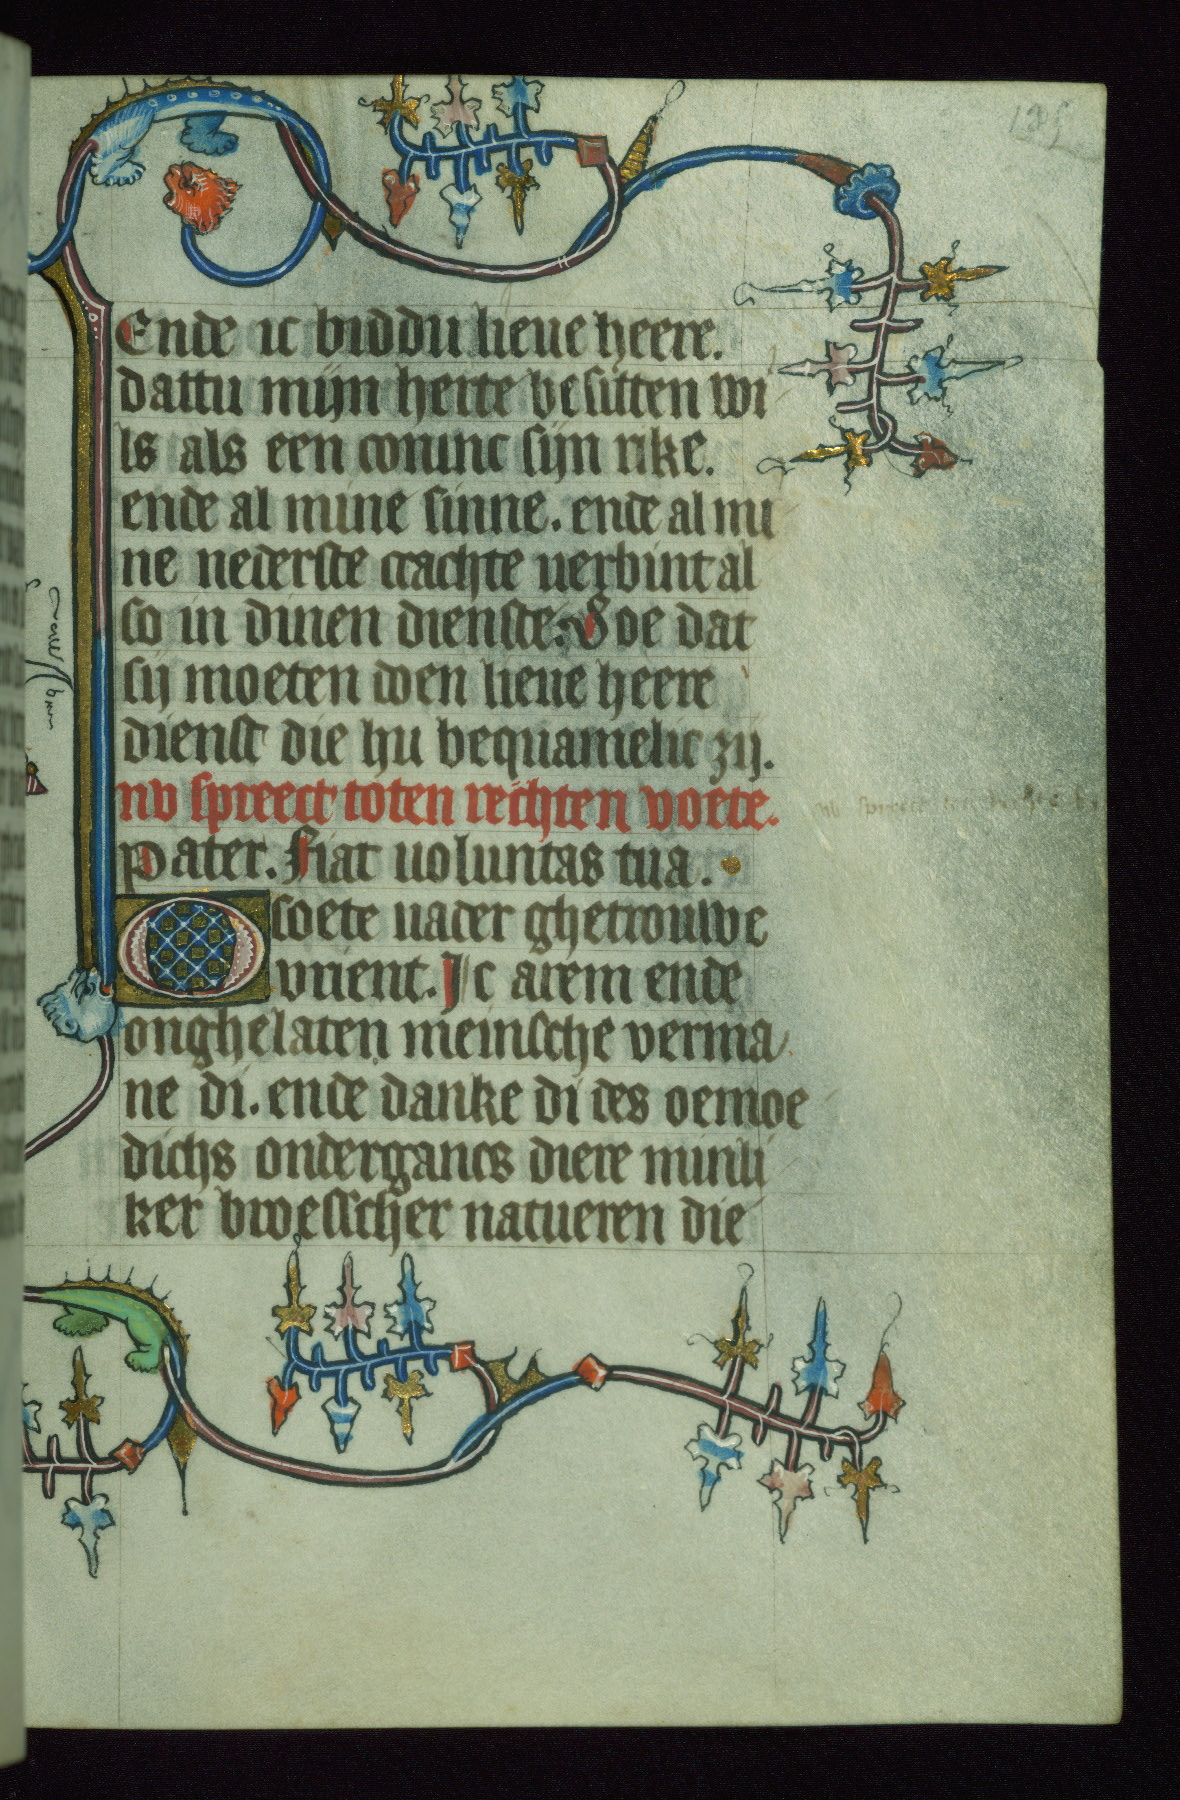 Ende ic biddu lieue heere.
dattu mijn herte besitten wi
ls als een coninc sijn rike.
ende al mine sinne. ende al mi
ne nederste crachte uerbint al
so in dinen dienste. Soe dat
sij moeten doen lieue heere
dienst die hu bequamelic zij.
nv spreect toten rechten voete.
Pater. Fiat uoluntas tua.
O soete uader ghetrouwe
vrient. Ic arem ende
onghelaten meinsche verma
ne di. ende danke di des oemoe
dichs ondergancs diere minli
ker broesscher natueren die